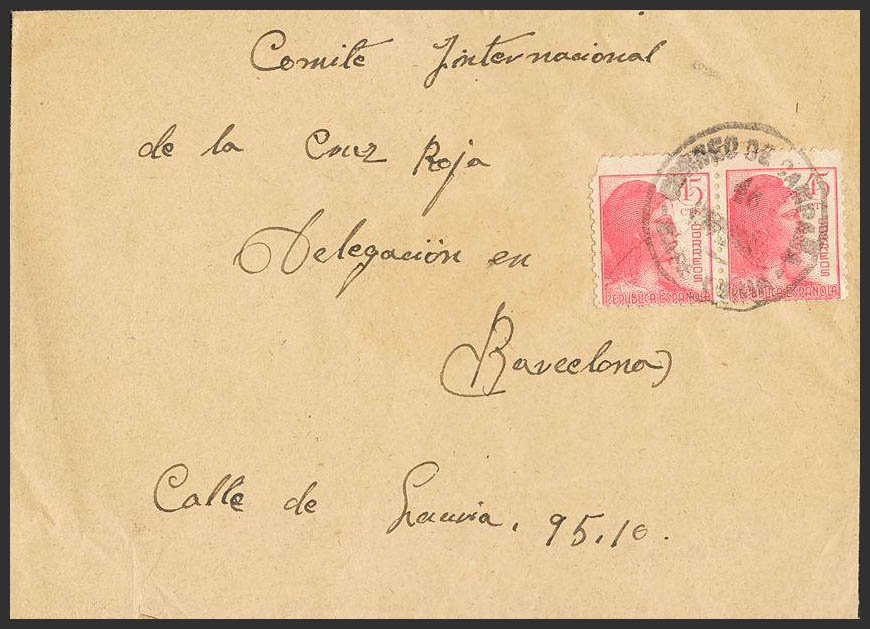 Comité Internacional
de la Cruz Roja
Delegación en
Barcelona
Calle de Lauria, 95, 1º.
45 CTS
CORREOS
REPUBLICA ESPAÑOLA
45 CTS
CORREOS
REPUBLICA ESPAÑOLA
CORREO DE CAMPAÑA